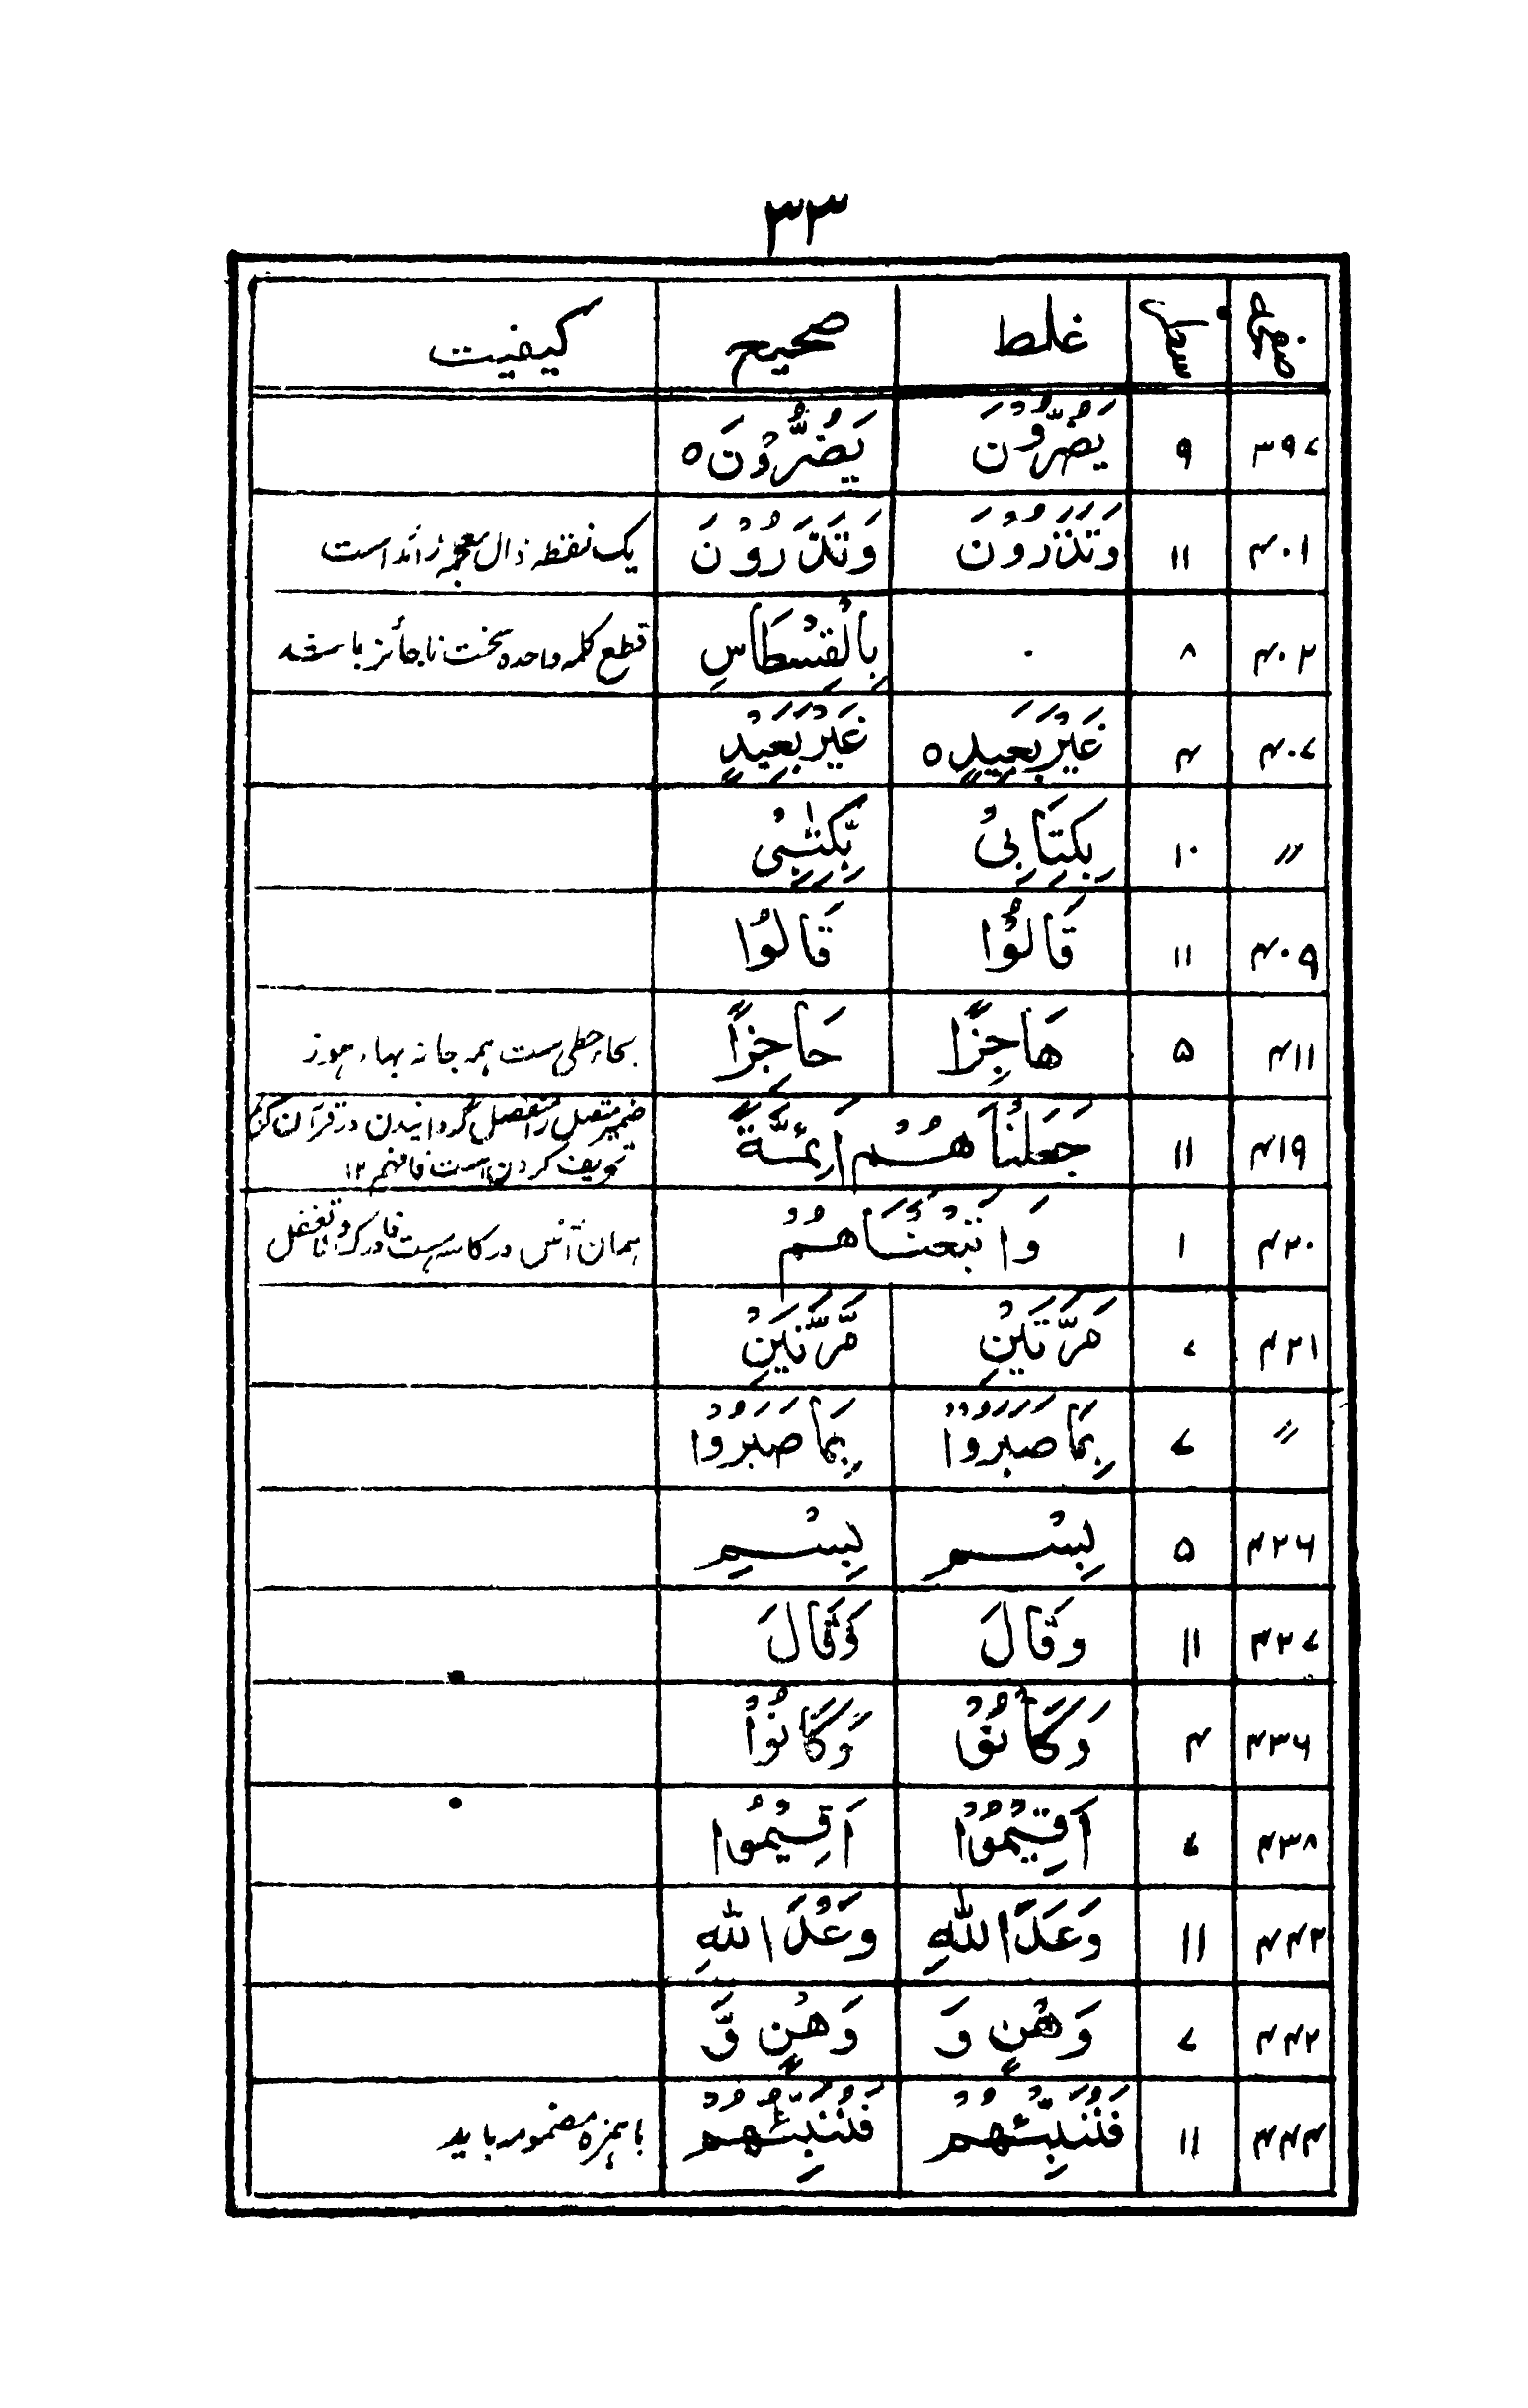 ۳۳
صفحہ سطر غلط صحیح کیفیت
۳۹۷ ۹ يَضُرُّوْنَ يَضُرُّوْنَ ه
۴۰۱ ۱۱ وَتَذَرُوْنَ وَتَذَرُوْنَ یک نقطہ ذال معجمہ زائد است
۴۰۲ ۸ ۰ بِالْقِسْطَاسِ قطع کلمہ واحدہ سخت ناجائز باشد
۴۰۷ ۴ غَيْرَ بَعِيْدٍ ه غَيْرَ بَعِيْدٍ
〃 ۱۰ بِكِتَابِىْ بِّكِتٰبِىْ
۴۰۹ ۱۱ قَالُوْٓا قَالُوْا
۴۱۱ ۵ هَاجِزًا حَاجِزًا بحاء حطی ست ہمہ جا نہ بہاء ہوز
۴۱۹ ۱۱ جَعَلْنَا هُمْ اَئِمَّةً ضمیر متصل را منفصل گردانیدن در قرآن کریم
تحریف کردن است فافہم ۱۲
۴۲۰ ۱ وَاَتْبَعْنَا هُمْ ہمان آش در کاسہ ست
۴۲۱ ۷ مَرَّتَيْنِ مَّرَّتَيْنِ
〃 ۷ بِمَا صَبَرُوْا بِمَا صَبَرُوْا
۴۲۶ ۵ بِسْمِ بِسْمِ
۴۲۷ ۱۱ وقَالَ وَقَالَ
۴۳۶ ۴ وَكَانُوْ وَكَانُوْا
۴۳۸ ۷ اَقِيْمُوْا اَقِيْمُوْا
۴۴۲ ۱۱ وَعَدَ اللهِ وَعْدَ اللهِ
۴۴۲ ۷ وَهْنٍ وَ وَهْنٍ وَّ
۴۴۴ ۱۱ فَنُنَبِّئُهُمْ فَنُنَبِّئُهُمْ با ہمزہ مضمومہ باید